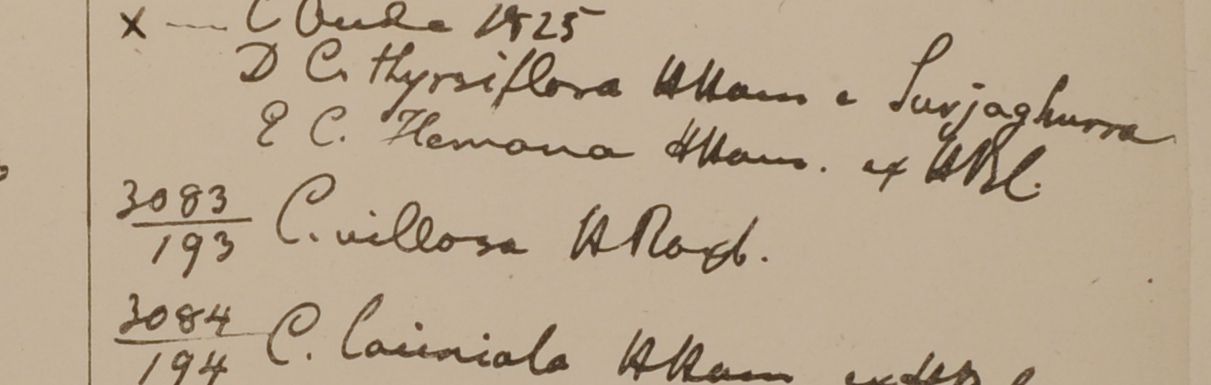 x — C Oude 1825
D C. thyrsiflora HHam e Surjaghurra
E C. Hemona HHam. ex HBC.
3083
193 C. villosa HRoxb.
3084
194 C. HHam